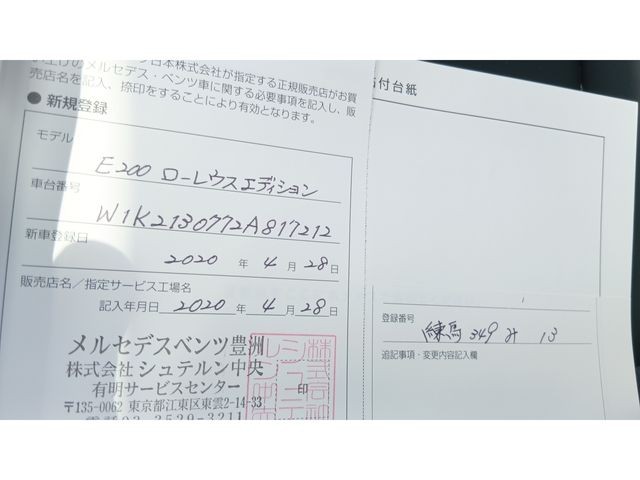 日本株式会社が指定する正規販売店がお買
い上げのメルセデス・ベンツ車に関する必要事項を記入し、販
売店名を記入、捺印をすることにより有効となります。
● 新規登録
モデル
E200 ローレウスエディション
車台番号
W1K2130772A817212
新車登録日
2020 年 4 月 28 日
販売店名／指定サービス工場名
記入年月日 2020 年 4 月 28 日
メルセデスベンツ豊洲
株式会社 シュテルン中央
有明サービスセンター
印
〒135-0062 東京都江東区東雲2-14-33
電話 03-3529-3211
付台紙
登録番号
練馬 349 み 13
追記事項・変更内容記入欄